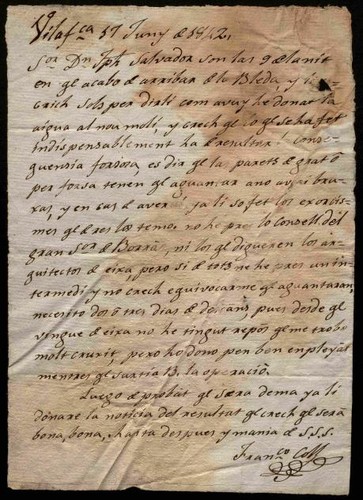 Vilafca 17 Juny de 1842,
Sor Dn Jph Salvador son las 9 de la nit
en qe acabo de arribar de la Bleda, y li es
crich sols per dirli com avuy he donat la
aigua al nou molí, y crech qe lo qe se ha fet
indispensablement ha de resultar Conse
quensia forsosa, es dir qe la parets de grat ó
per forsa tenen qe aguantar
y en cas de averi ja li so fet los exorcis
mes qe eres los temo, no he pres lo Consell del
gran Sor de Borrás, ni los qe digueren los ar
quitectos de eixa, pero si de tots ne he pres un in
termedi y no crech equivocarme qe aguantaran,
necesito dos ó tres dias de descans, pues desde qe
vingue de eixa no he tingut repos qe me trobo
molt cruxit, pero ho dono per bon empleyat
mentres qe surtia B. la operació.
Luego de probat qe sera dema ya li
donare la noticia del resultat qe crech qe sera
bona, bona, Hasta despues y mania de S.S.S.
Franco